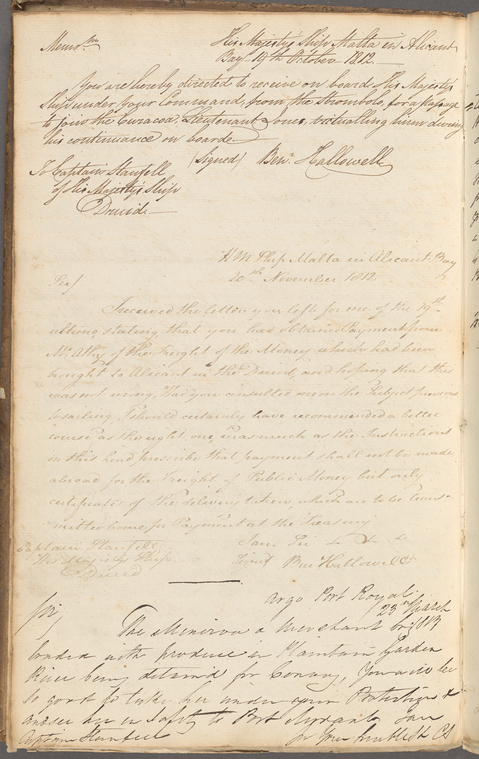 Memo.m His Majesty's Ship Malta in Alicant
Bay 19th October 1812
You are hereby directed to receive on board His Majesty's
Ship under your Command, from the Strombolo, for a Passage
to join the Curacoa, Lieutenant Jones, victualling him during
his continuance on board.
To Captain Stanfell (Signed) Benn. Hallowell
of His Majesty's Ship
Druid
H M Ship Malta in Alicant Bay
20th November 1812
Sir/
I received the letter you left for me of the 19th
ultimo stating that you had obtained Payment from
Mr. Athy of the Freight of the Money which had been
brought to Alicant in the Druid, and hoping that this
was not wrong, Had you consulted me on the Subject previous
to sailing, I should certainly have recommended a better
course as the right one, inasmuch as the Instructions
on this head prescribe that payment shall not be made
abroad for the Freight of Public Money but only
certificates of the delivery which are to be trans-
mitted home, for Payment at the Treasury
Captain Stanfell I am Sir &c &c &c
His Majesty's Ship Signed Ben Hallowell
Druid
Argo Port Royal
Sir 23rd March 1813
The Minerva a Merchant brig
loaded with produce in Plantain Garden
River being detained for Convoy, You will be
so good to take her under your Protection &
and see her in Safety to Port Morant. I am
Captain Stanfell Sir Your humble St